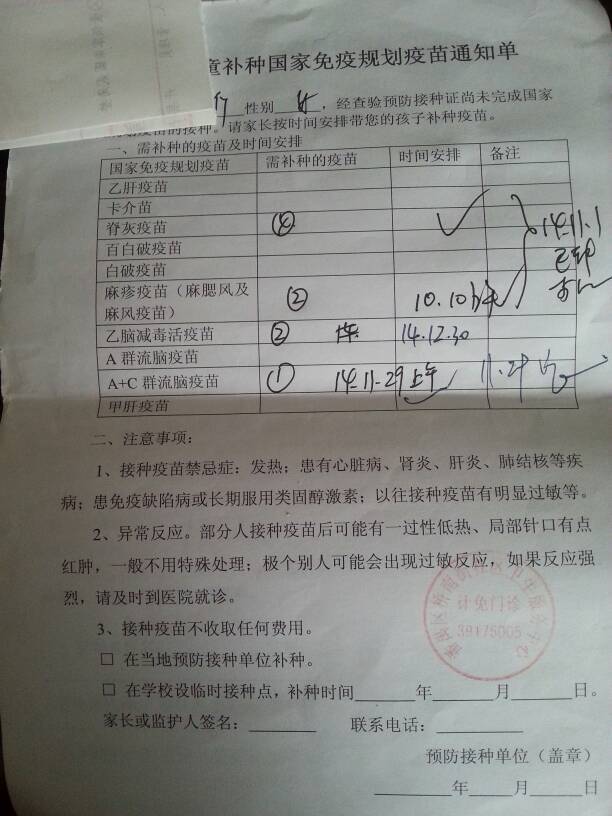 童补种国家免疫规划疫苗通知单
性别 女 ，经查验预防接种证尚未完成国家
规划疫苗的接种。请家长按时间安排带您的孩子补种疫苗。
一、需补种的疫苗及时间安排
国家免疫规划疫苗 需补种的疫苗 时间安排 备注
乙肝疫苗
卡介苗
脊灰疫苗 ④ ✓ 14.11.1
百白破疫苗 已种
白破疫苗
麻疹疫苗（麻腮风及麻风疫苗） ② 10.10
乙脑减毒活疫苗 ② 14.12.30
A 群流脑疫苗
A+C 群流脑疫苗 ① 14.11.29上午 11.29
甲肝疫苗
二、注意事项：
1、接种疫苗禁忌症：发热；患有心脏病、肾炎、肝炎、肺结核等疾
病；患免疫缺陷病或长期服用类固醇激素；以往接种疫苗有明显过敏等。
2、异常反应。部分人接种疫苗后可能有一过性低热、局部针口有点
红肿，一般不用特殊处理；极个别人可能会出现过敏反应，如果反应强
烈，请及时到医院就诊。
3、接种疫苗不收取任何费用。
计免门诊
39175005
□ 在当地预防接种单位补种。
□ 在学校设临时接种点，补种时间______年______月______日。
家长或监护人签名：______ 联系电话：______
预防接种单位（盖章）
______年____月____日